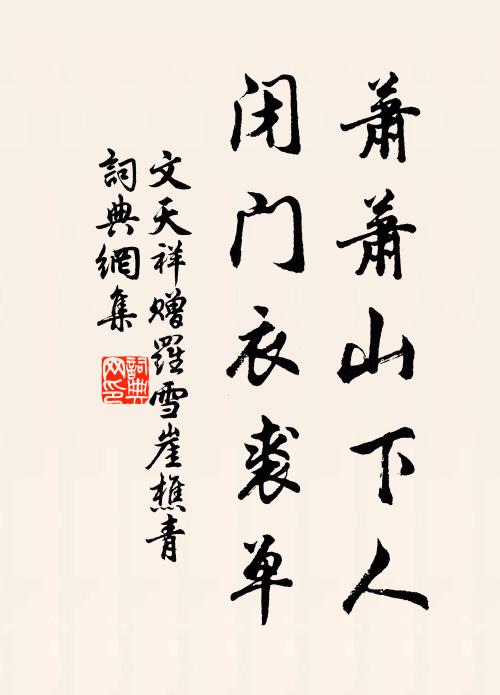 蕭蕭山下人
闭门衣裘单
文天祥赠羅雪崖樵青
詞典網集
詞典网印